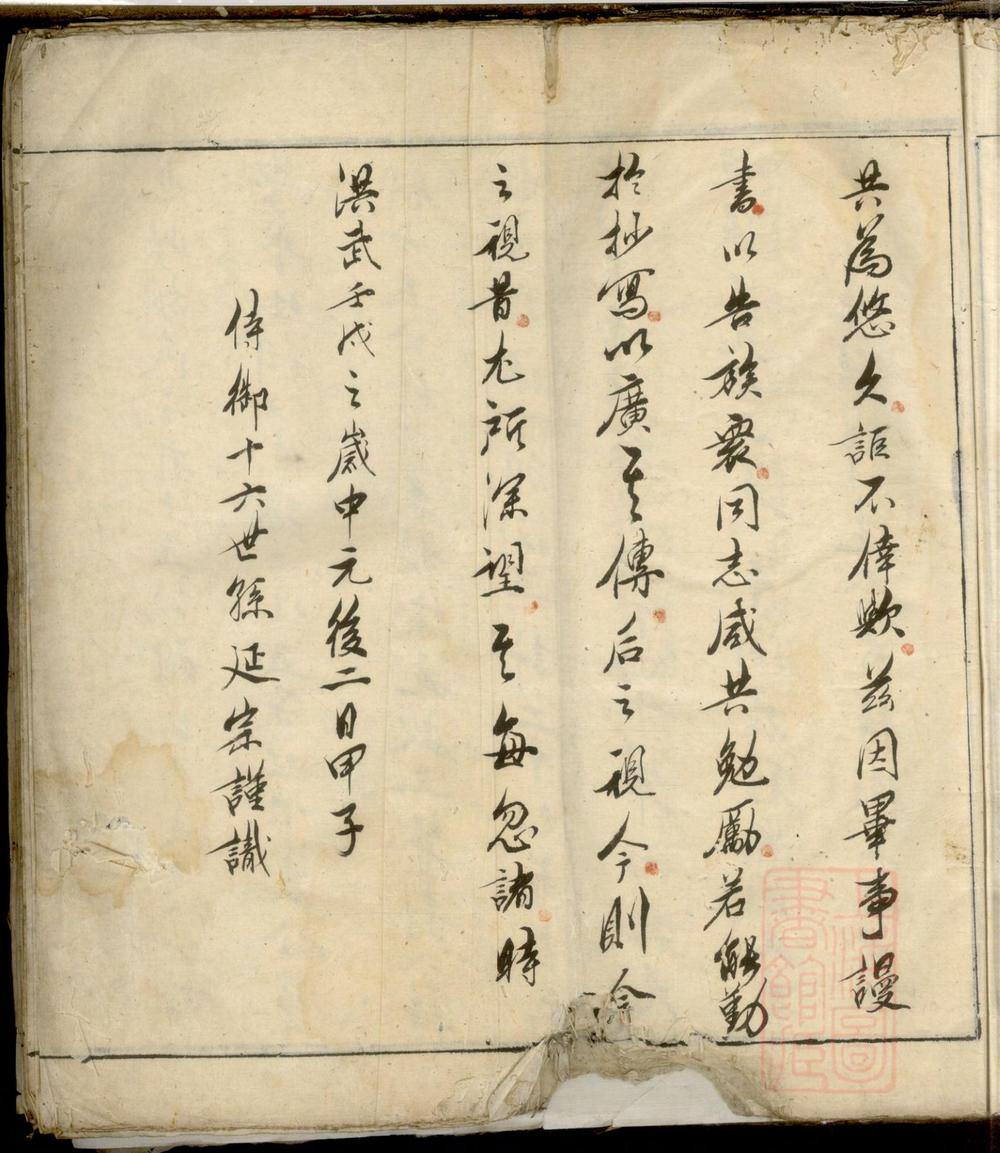 共為悠久詎不偉歟茲因畢事謾
書以告族衆同志咸共勉勵若能勤
於抄寫以廣其傳后之視今則今
之視昔尤所深望其毋忽諸時
洪武壬戌之歲中元後二日甲子
侍御十六世孫延宗謹識